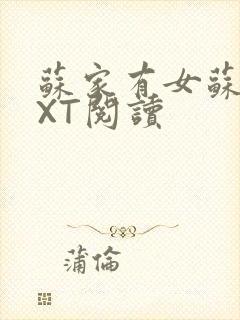 蘇家有女蘇
XT閱讀
蒲倫